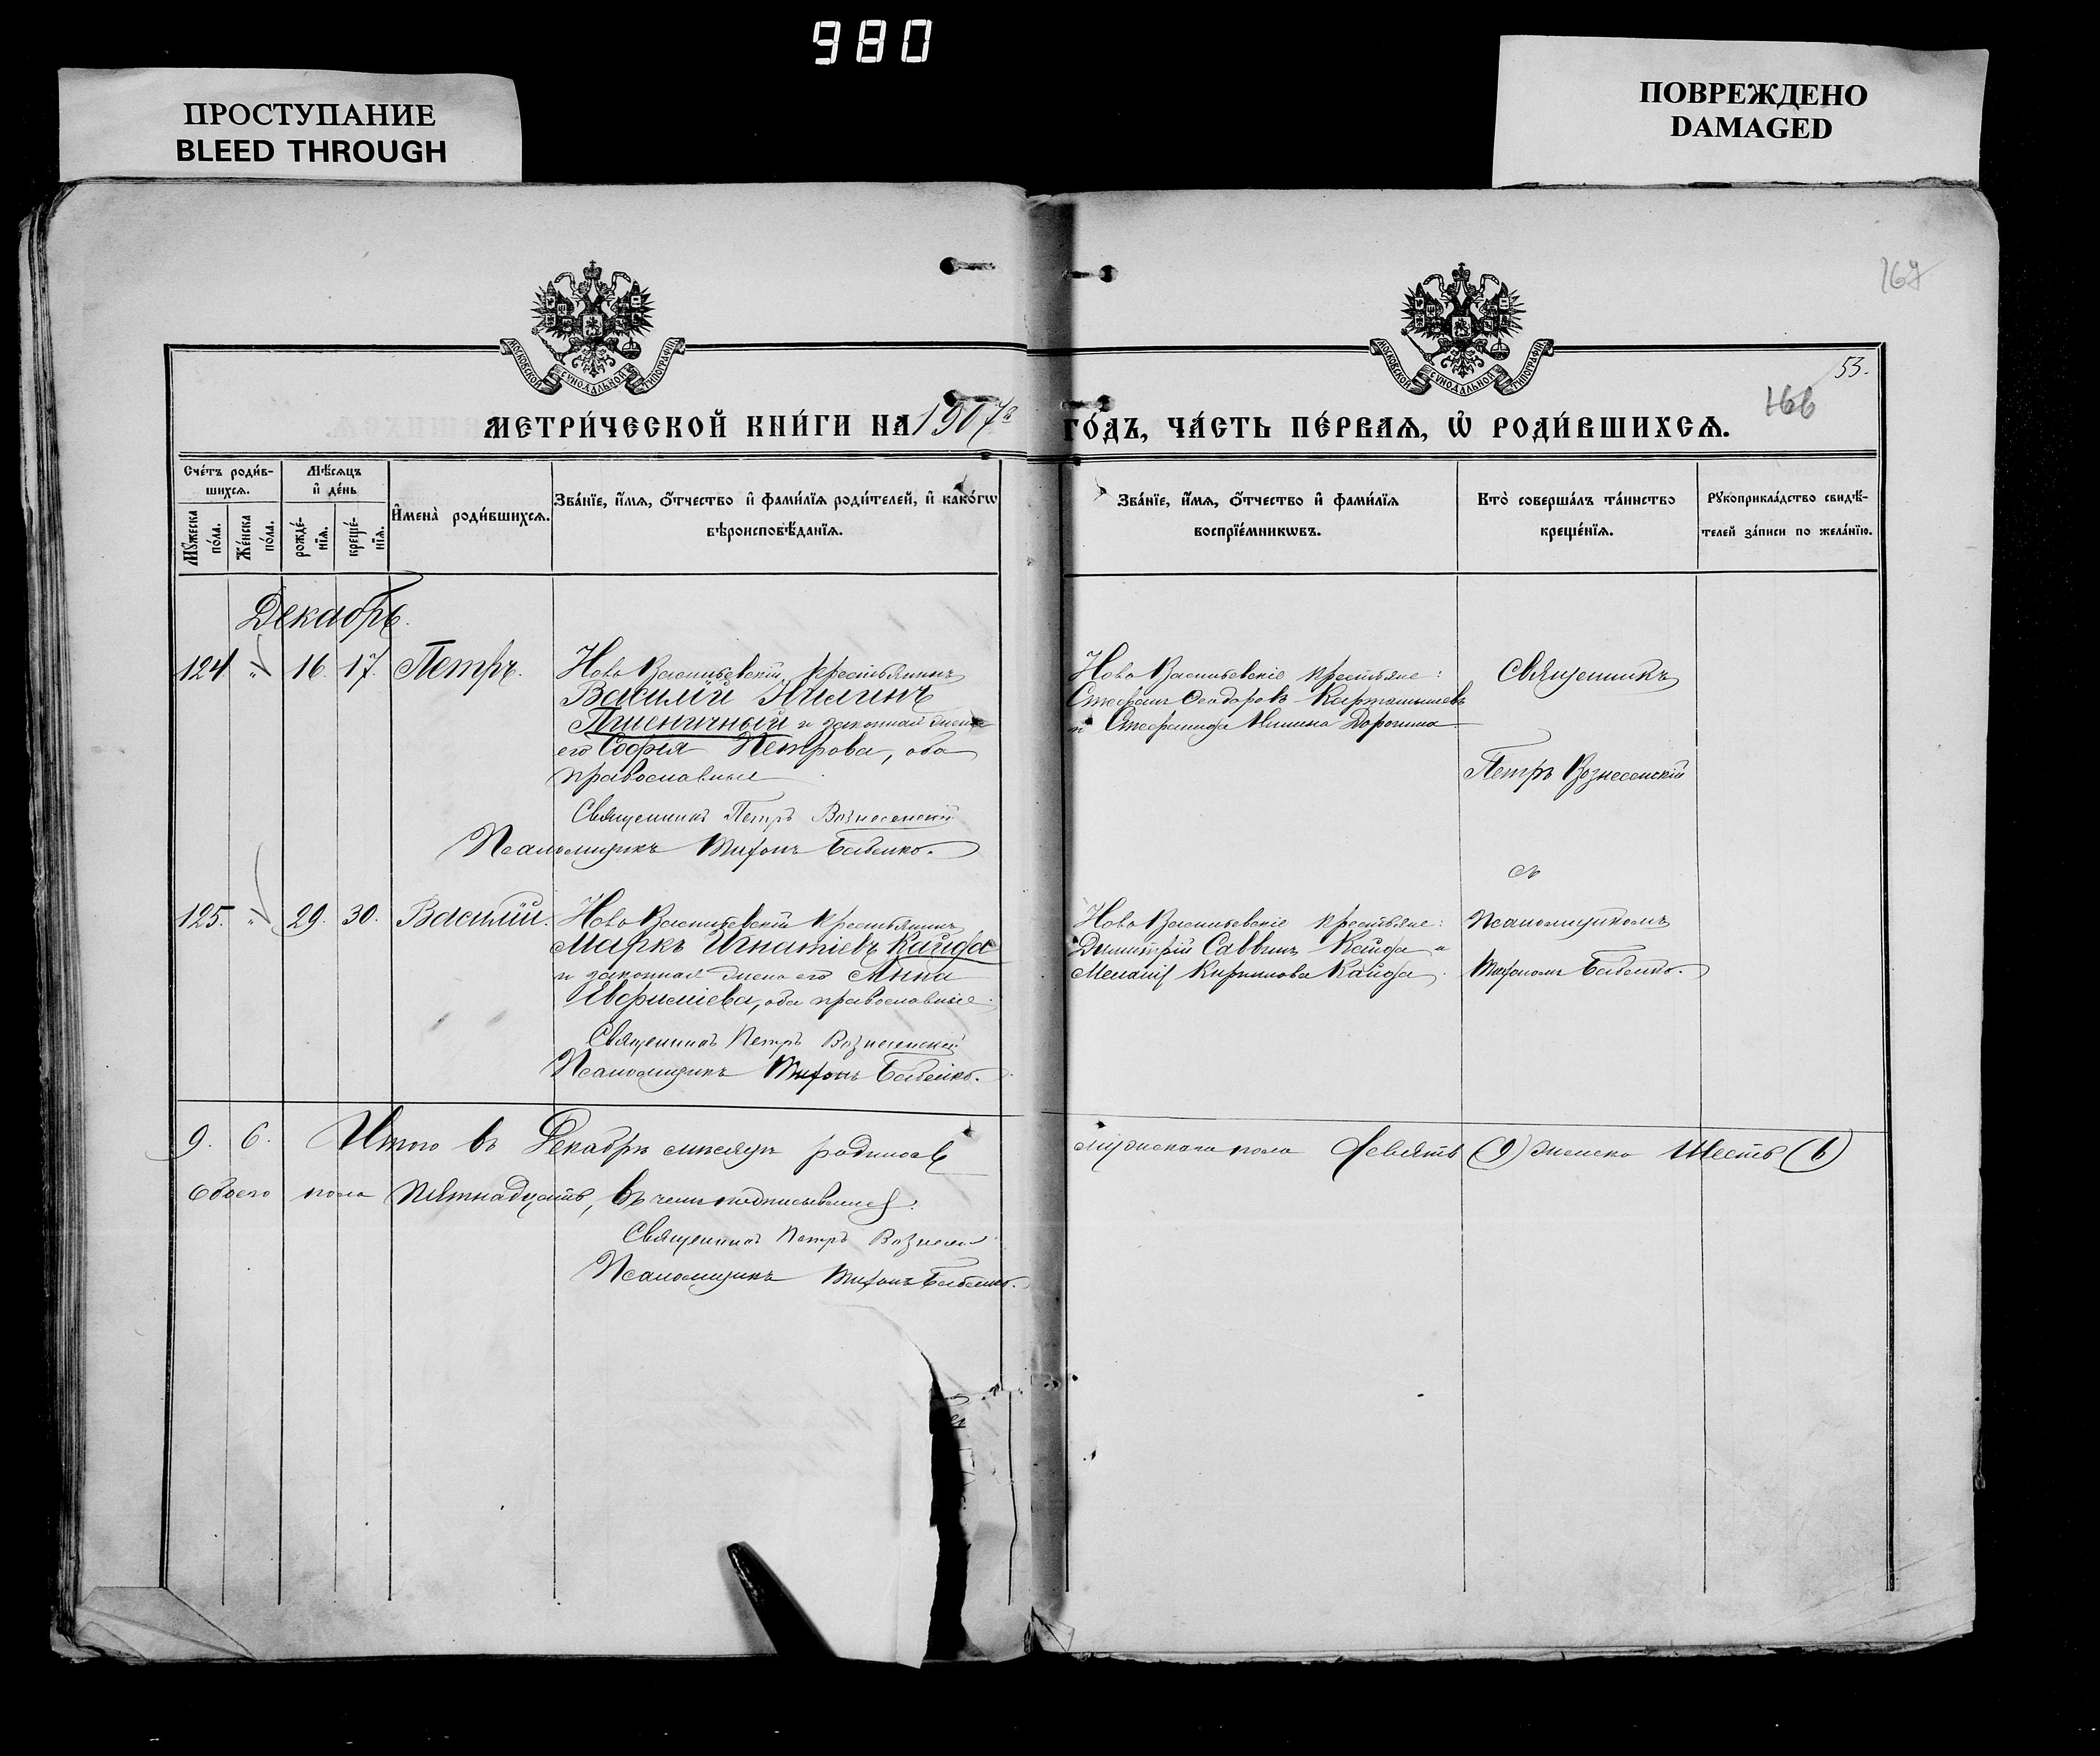 980
ПРОСТУПАНИЕ
BLEED THROUGH
ПОВРЕЖДЕНО
DAMAGED
МОСКОВСКОЙ СѴНОДАЛЬНОЙ ТИПОГРАФІИ
МОСКОВСКОЙ СѴНОДАЛЬНОЙ ТИПОГРАФІИ
167
53.
166
МЕТРИ́ЧЕСКОЙ КНИ́ГИ НА 1907й
ГО́ДЪ, ЧА́СТЬ ПЕ́РВАЯ, Ѡ҆ РОДИ́ВШИХСЯ.
Сче́тъ роди́в-
шихся.
Мꙋ́жеска
по́ла.
Же́нска
по́ла.
Мѣ́сяцъ
и҆ де́нь
рожде́-
нїя.
креще́-
нїя.
И҆мена̀ роди́вшихся.
Зва́нїе, и҆́мя, ѻ҆́тчество и҆ фами́лїя роди́телей, и҆ како́гѡ
вѣроисповѣ́данїя.
Зва́нїе, и҆́мя, ѻ҆́тчество и҆ фами́лїя
воспрїе́мникѡвъ.
Кто̀ соверша́лъ та́инство
креще́нїя.
Рꙋкоприкла́дство свидѣ́-
телей за́писи по жела́нїю.
Декабрь.
124 " 16. 17. Петръ.
Ново Васильевскій крестьянинъ
Василій Нилинъ
Пшеничный и законная жена
его Софія Петрова, оба
православные
Священникъ Петръ Вознесенскій
Псаломщикъ Тихонъ Бабенко.
Ново Васильевскіе крестьяне:
Стефанъ Ѳеодоровъ
и Стефанида Доронина
Священникъ
Петръ Вознесенскій
съ
125. " 29. 30. Василій.
Ново Васильевскій крестьянинъ
Маркъ Игнатіевъ Кайда
и законная жена его Анна
Евфиміева, оба православные.
Священникъ Петръ Вознесенскій
Псаломщикъ Тихонъ Бабенко.
Ново Васильевскіе крестьяне:
Димитрій Саввинъ Кайда и
Меланія Кириллова Кайда.
Псаломщикомъ
Тихономъ Бабенко.
9. 6. Итого въ Декабрѣ мѣсяцѣ родилось
мужскаго пола Девять (9) женска Шесть (6)
обоего пола Пятнадцать, въ чемъ подписываемся:
Священникъ Петръ Вознесен
Псаломщикъ Тихонъ Бабенко.